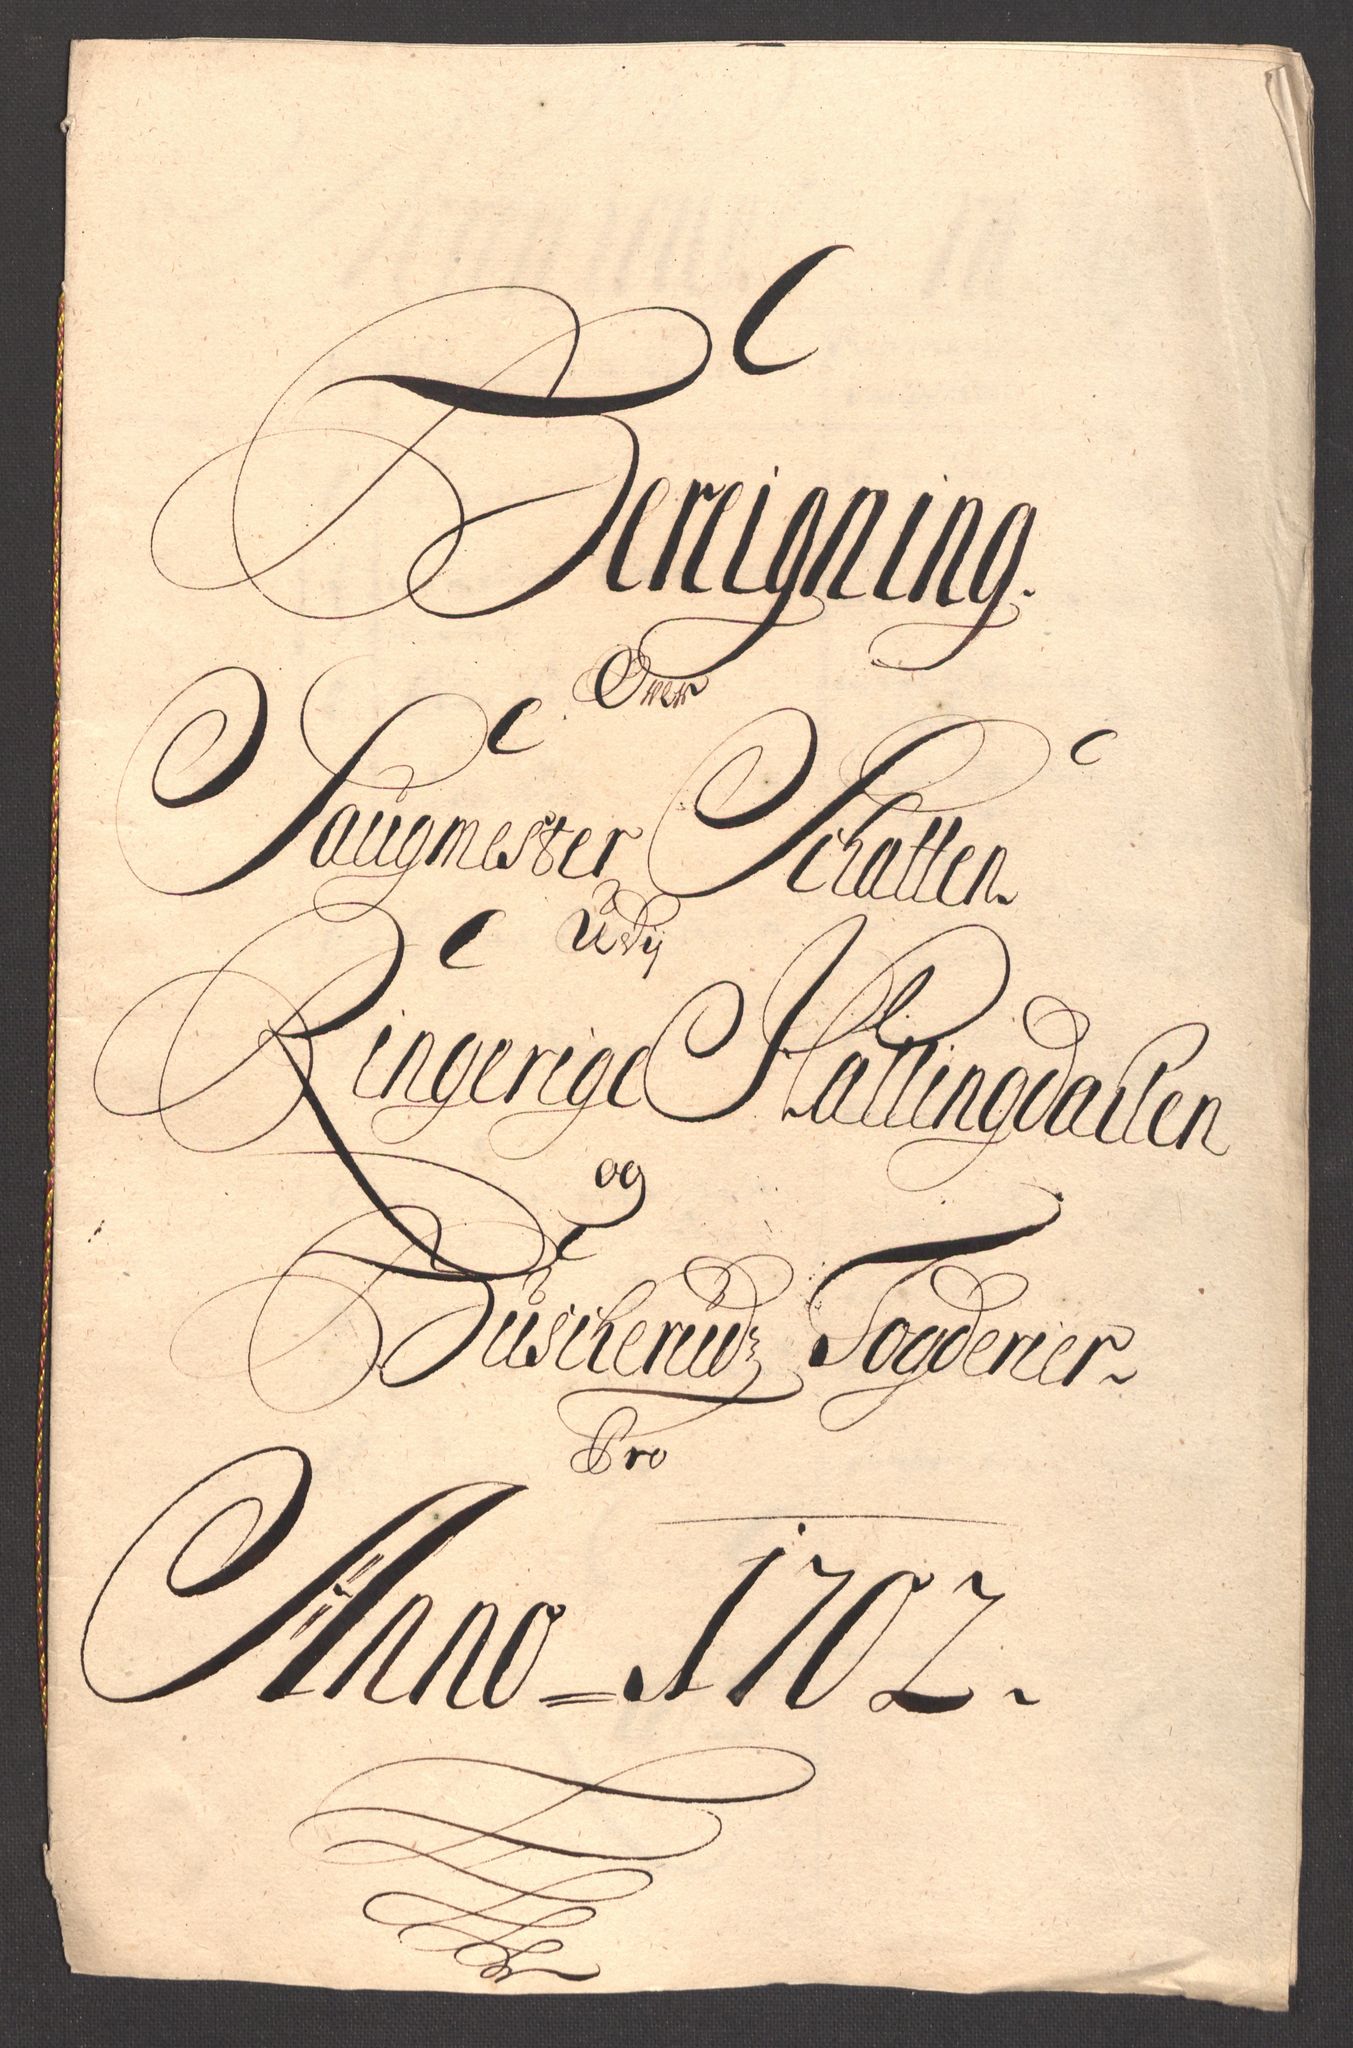 Bereigning.
Over
Saugmester Schatten.
Udij
Ringerige Hallingdallen
og
Buscherudz Fogderier
Pro
Anno = 1702.